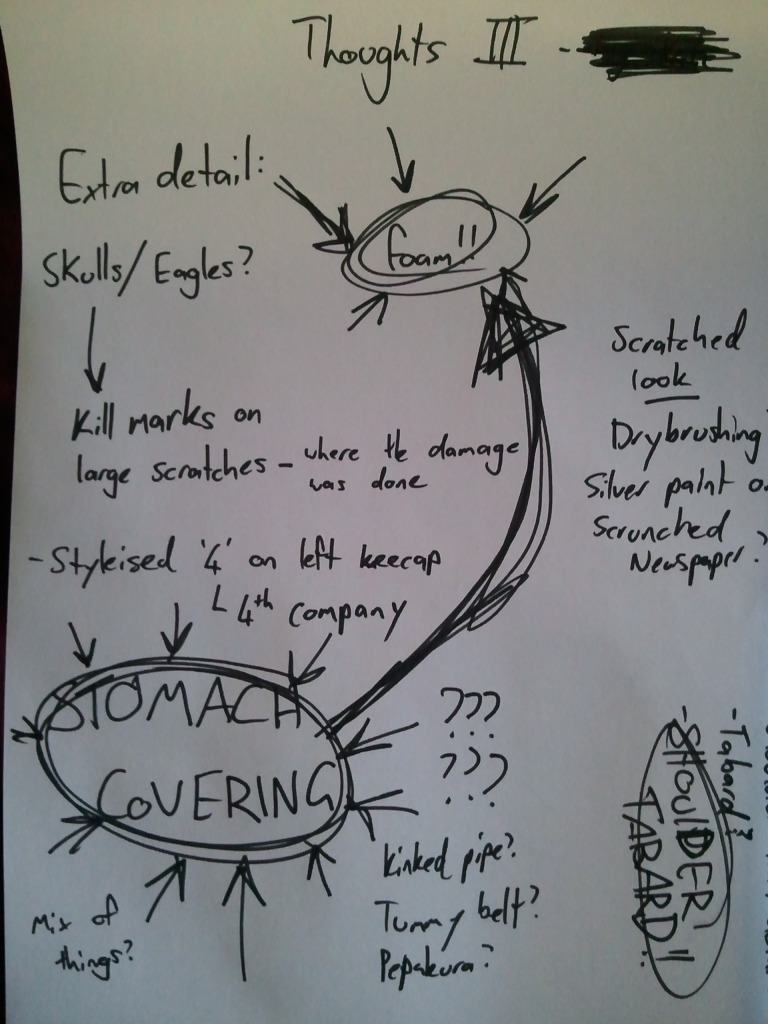 Thoughts III -
Extra detail:
Skulls/Eagles?
foam!!
Kill marks on
large scratches - where the damage
was done
Scratched
look
Drybrushing?
Silver paint on
Scrunched
Newspaper?
- Styleised '4' on left keecap
4th company
STOMACH
COVERING
???
???
Kinked pipe?
Tummy belt?
Pepakura?
Mix of
things?
- Tabard?
- SHOULDER
TABARD!!